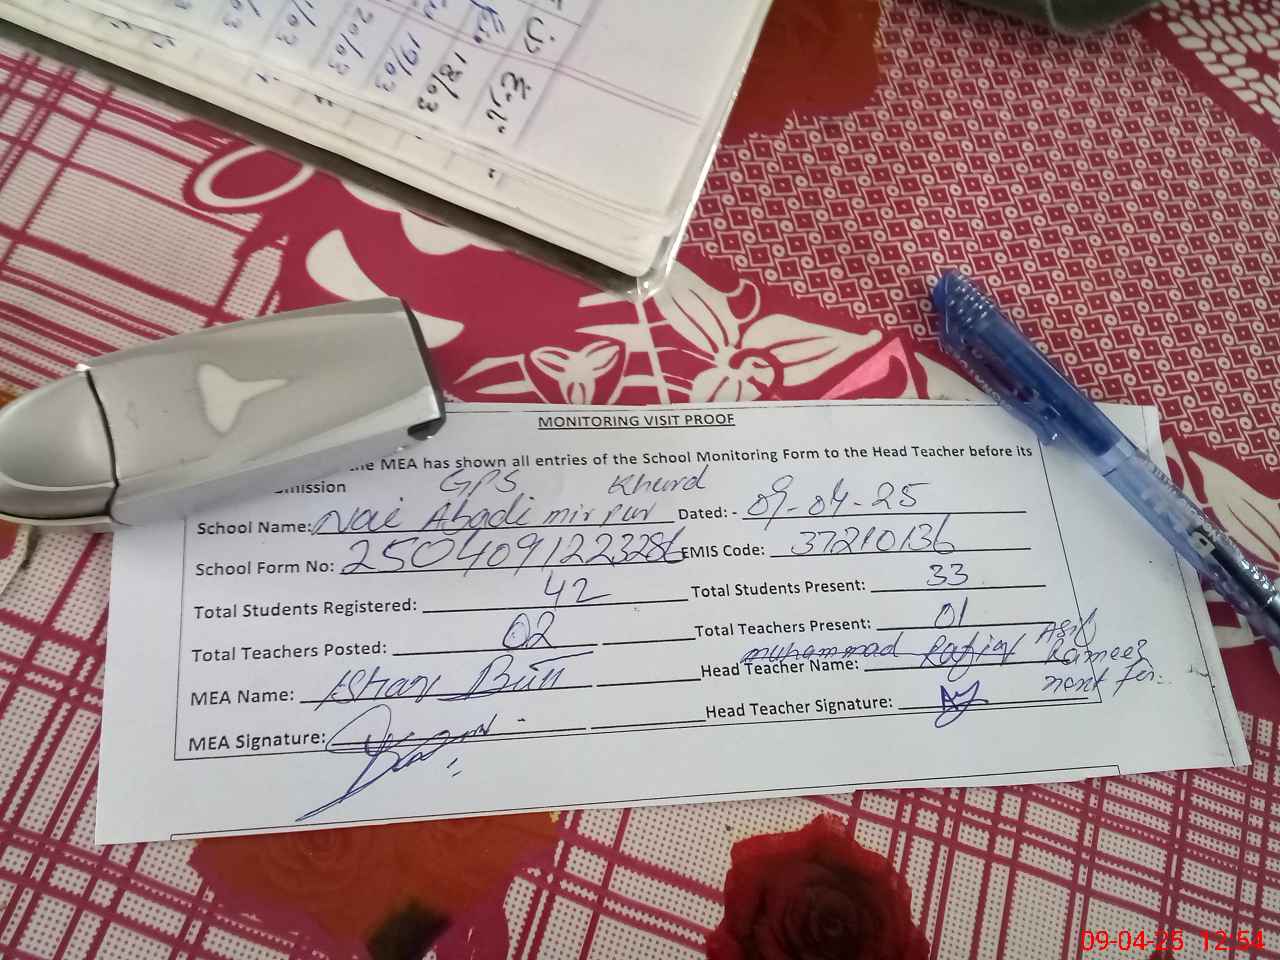 18/03
19/03
20/03
MONITORING VISIT PROOF
the MEA has shown all entries of the School Monitoring Form to the Head Teacher before its
mission
GPS Khurd
School Name: Nai Abadi mirpur Dated: - 09-04-25
School Form No: 2504091223286 EMIS Code: 37210136
Total Students Registered: 42 Total Students Present: 33
Total Teachers Posted: 02 Total Teachers Present: 01
MEA Name: Butt Head Teacher Name: muhammad Asif
Rameez
MEA Signature: Head Teacher Signature:
09-04-25 12:54